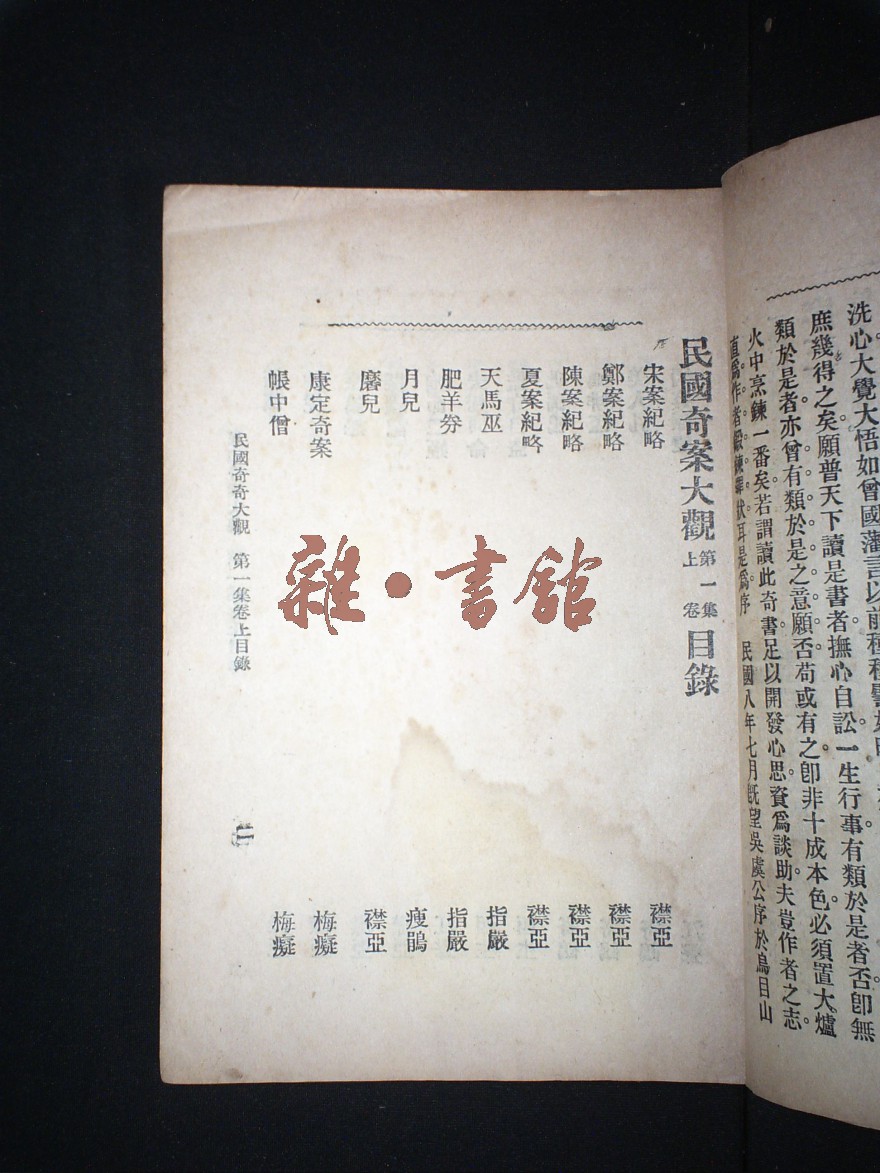 洗心大覺大悟如曾國藩言以前種種譬如昨
庶幾得之矣願普天下讀是書者撫心自訟一生行事有類於是者否卽無
類於是者亦曾有類於是之意願否苟或有之卽非十成本色必須置大爐
火中烹鍊一番矣若謂讀此奇書足以開發心思資爲談助夫豈作者之志
直爲作者鍊罪狀耳是爲序 民國八年七月旣望吳虞公序於鳥目山
民國奇案大觀 第一集上卷 目錄
宋案紀略 襟亞
鄭案紀略 襟亞
陳案紀略 襟亞
夏案紀略 襟亞
天馬巫 指嚴
肥羊券 指嚴
月兒 瘦鵑
磨兒 襟亞
康定奇案 梅癡
帳中僧 梅癡
民國奇奇大觀 第一集卷上目錄 二
雜·書館